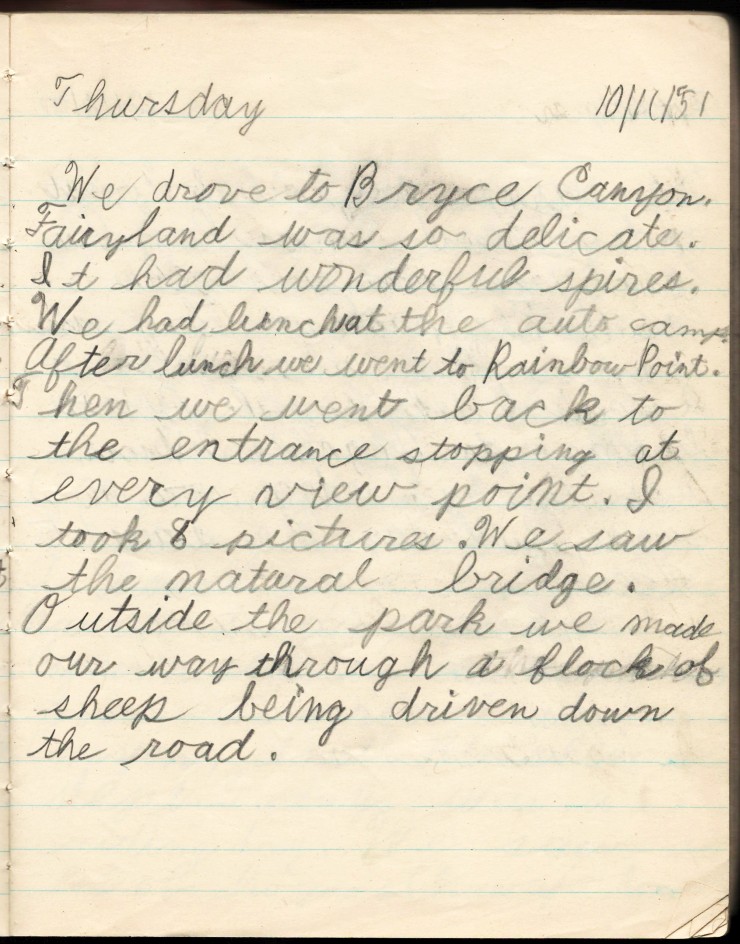 Thursday 10/11/51
We drove to Bryce Canyon.
Fairyland was so delicate.
It had wonderful spires.
We had lunch at the auto camp.
After lunch we went to Rainbow Point.
Then we went back to
the entrance stopping at
every view point. I
took 8 pictures. We saw
the natural bridge.
Outside the park we made
our way through a flock of
sheep being driven down
the road.